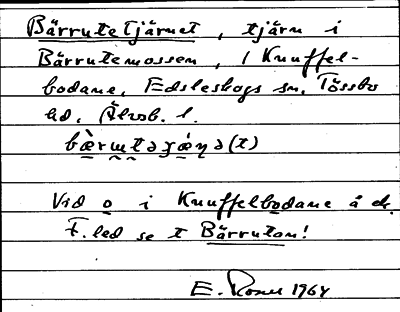 Bärrutetjärnet, tjärn i
Bärrutemossen, i Knuffel-
bodane, Edsleskogs sn, Tössbo
hd, Älvsb. l.
Vid o i Knuffelbodane å dr.
F. led se t Bärruton!
E. 1964